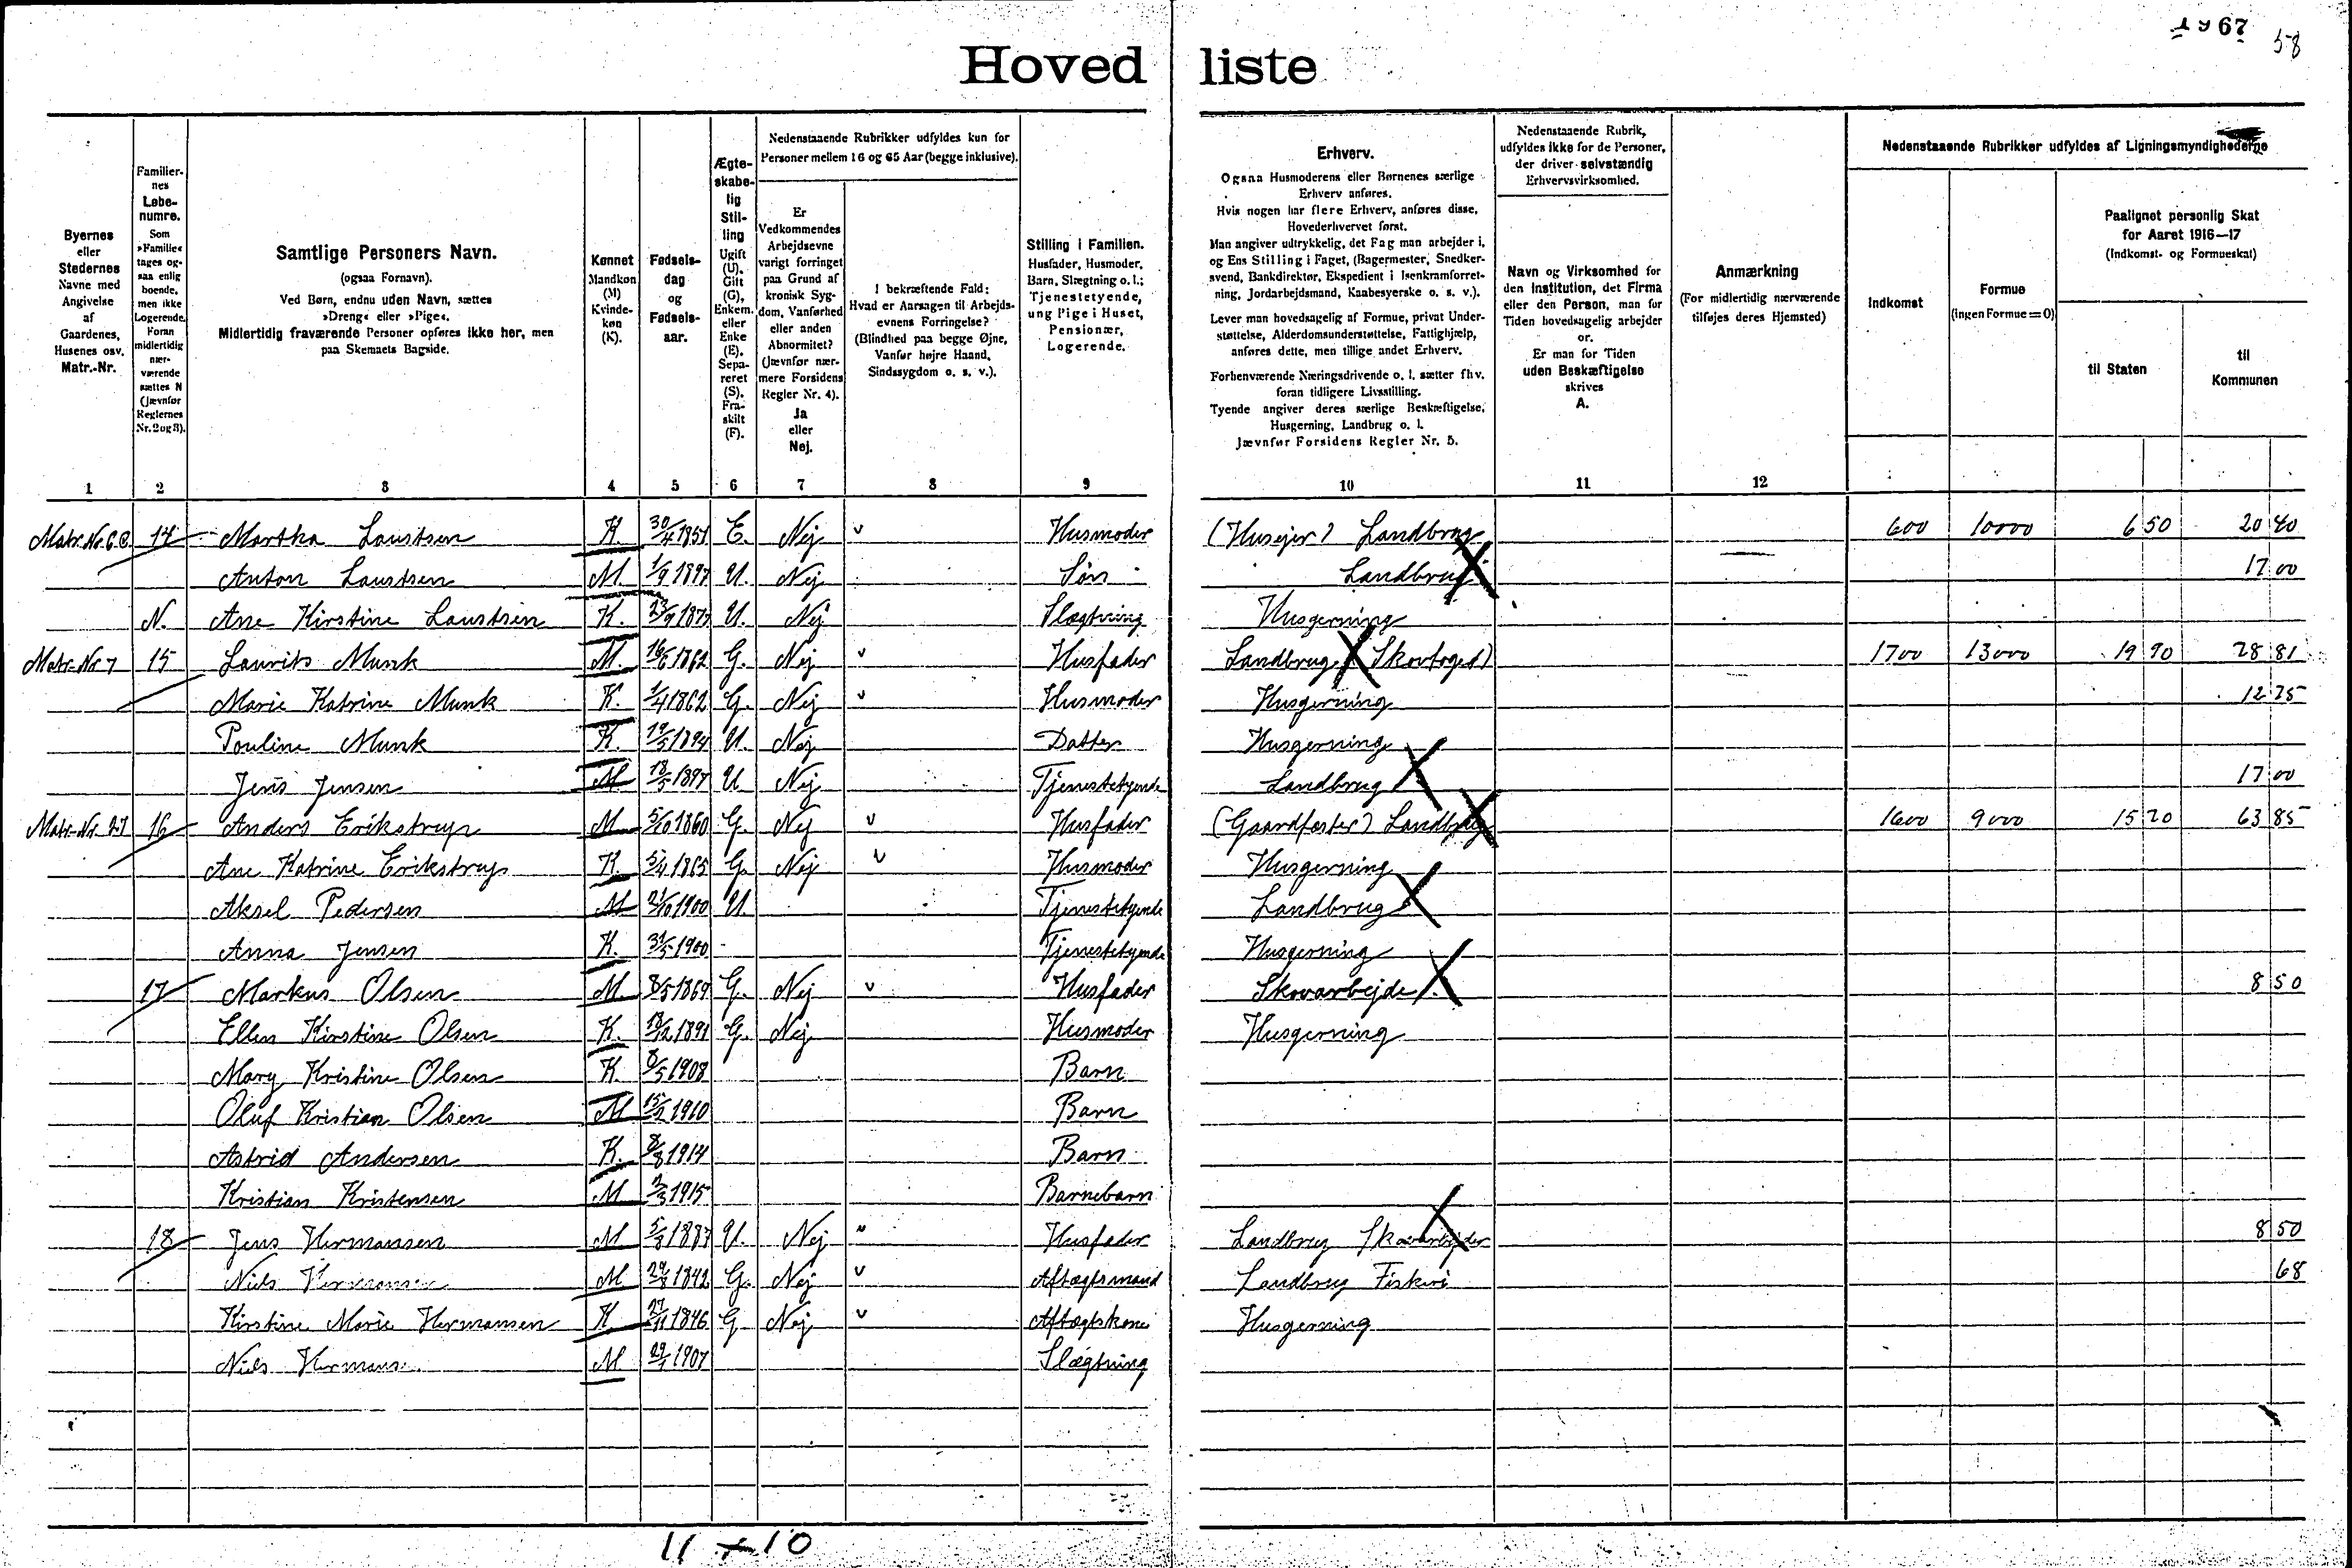 1967
58
Hoved liste
Byernes eller Stedernes Navne med Angivelse af Gaardenes, Husenes osv. Matr.-Nr.
Familiernes Løbenumre. Som »Familie« tages ogsaa enlig boende, men ikke Logerende. Foran midlertidig nærværende sættes N (Jævnfør Reglernes Nr. 2 og 3).
Samtlige Personers Navn.
(ogsaa Fornavn).
Ved Børn, endnu uden Navn, sættes »Dreng« eller »Pige«.
Midlertidig fraværende Personer opføres ikke her, men paa Skemaets Bagside.
Kønnet Mandkøn (M) Kvindekøn (K).
Fødselsdag og Fødselsaar.
Ægteskabelig Stilling Ugift (U). Gift (G), Enkem. eller Enke (E). Separeret (S). Fraskilt (F).
Nedenstaaende Rubrikker udfyldes kun for Personer mellem 16 og 65 Aar (begge inklusive).
Er Vedkommendes Arbejdsevne varigt forringet paa Grund af kronisk Sygdom, Vanførhed eller anden Abnormitet? (Jævnfør nærmere Forsidens Regler Nr. 4). Ja eller Nej.
I bekræftende Fald: Hvad er Aarsagen til Arbejdsevnens Forringelse? (Blindhed paa begge Øjne, Vanfør højre Haand, Sindssygdom o. s. v.).
Stilling i Familien. Husfader, Husmoder, Barn, Slægtning o. l.; Tjenestetyende, ung Pige i Huset, Pensionær, Logerende.
Erhverv.
Ogsaa Husmoderens eller Børnenes særlige Erhverv anføres.
Hvis nogen har flere Erhverv, anføres disse, Hovederhvervet først.
Man angiver udtrykkelig, det Fag man arbejder i, og Ens Stilling i Faget, (Bagermester, Snedkersvend, Bankdirektør, Ekspedient i Isenkramforretning, Jordarbejdsmand, Kaabesyerske o. s. v.).
Lever man hovedsagelig af Formue, privat Understøttelse, Alderdomsunderstøttelse, Fattighjælp, anføres dette, men tillige andet Erhverv.
Forhenværende Næringsdrivende o. l. sætter fhv. foran tidligere Livsstilling.
Tyende angiver deres særlige Beskæftigelse, Husgerning, Landbrug o. l.
Jævnfør Forsidens Regler Nr. 5.
Nedenstaaende Rubrik, udfyldes ikke for de Personer, der driver selvstændig Erhvervsvirksomhed.
Navn og Virksomhed for den Institution, det Firma eller den Person, man for Tiden hovedsagelig arbejder
or.
Er man for Tiden uden Beskæftigelse skrives A.
Anmærkning
(For midlertidig nærværende tilføjes deres Hjemsted)
Nedenstaaende Rubrikker udfyldes af Ligningsmyndighederne
Indkomst
Formue
(ingen Formue = 0)
Paalignet personlig Skat for Aaret 1916—17
(Indkomst- og Formueskat)
til Staten
til Kommunen
1 2 3 4 5 6 7 8 9 10 11 12
14 Martha Laustsen K. 30/4 1851 E. Nej v Husmoder (Husejer) Landbrug 600 10000 6 50 20 40
Anton Laustsen M. 1/9 1897 U. Nej Søn Landbrug 17 00
N. Ane Kirstine Laustsen K. 23/9 1877 U. Nej Slægtning Husgerning
Matr-Nr 7 15 Laurits Munk M. 16/6 1862 G. Nej v Husfader Landbrug (Skovfoged) 1700 13000 19 90 28 81
Marie Katrine Munk K. 1/4 1862 G. Nej v Husmoder Husgerning 12 25
Pouline Munk K. 19/5 1894 U. Nej Datter Husgerning
Jens Jensen M 18/5 1897 U Nej Tjenestetyende Landbrug 17 00
Matr-Nr. 21 16 Anders Erikstrup M 5/10 1860 G. Nej v Husfader (Gaardfæster) Landbrug 1600 9000 15 20 63 85
Ane Katrine Erikstrup K. 5/4 1865 G. Nej v Husmoder Husgerning
Aksel Pedersen M 21/10 1900 U. Tjenestetyende Landbrug
Anna Jensen K. 31/5 1900 - Tjenestetyende Husgerning
17 Markus Olsen M 8/5 1869 G. Nej v Husfader Skovarbejder 8 50
Ellen Kirstine Olsen K. 18/2 1891 G. Nej Husmoder Husgerning
Mary Kristine Olsen K. 8/5 1908 Barn
Oluf Kristian Olsen M 15/2 1910 Barn
Astrid Andersen K. 8/8 1914 Barn
Kristian Kristensen M 2/3 1915 Barnebarn
18 Jens Hermansen M 5/8 1887 U. Nej " Husfader Landbrug Skovarbejder 8 50
Niels Hermansen M 1842 G. Nej v Aftægtsmand Landbrug Fiskeri 68
Kirstine Marie Hermansen K 27/11 1846 G Nej v Aftægtskone Husgerning
Niels M 29/1 1907 Slægtning
11 + 10